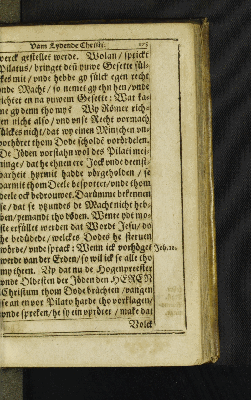 Vam Lydende Christi.
werck gestellet werde. Wolan / sprickt
Pilatus / bringet den yuwe Gesette sül-
ckes mit / vnde hebbe gy sülck egen recht
vnde Macht / so nemet gy ehn hen / vnde
richtet en na yuwem Gesette: Wat ka-
me gy denn tho my? Wy Römer rich-
ten nicht also / vnd vnse Recht vormach
sülckes nicht / dat wy einen Minschen vn-
vorhöret thom Dode scholde vordelen.
De Jöden vorstahn wol des Pilati mei-
ninge / dat he ehnen ere Jock vnde deenst-
barheit hyrmit hadde vörgeholden / se
darmit thom Deele bespottet / vnde thom
deele ock bedrouwet. Darümme bekennen
se / dat se yhundes de Macht nicht heb-
ben / yemandt tho döden. Wente ydt mo-
ste erfüllet werden dat Wordt Jesu / do
he bedüdede / welckes Dodes he steruen
wörde / vnde sprack: Wenn ick vorhöget
werde van der Erden / so wil ick se alle tho
my them. Ny dat nu de Hogenpreester
vnde Oldesten der Jöden den HEREN
Christum thom Dode bröchten / vangen
se an en vor Pilato harde tho vorklagen /
vnde spreken / he sy ein vprörer / make dat
Volck
Joh. 12.